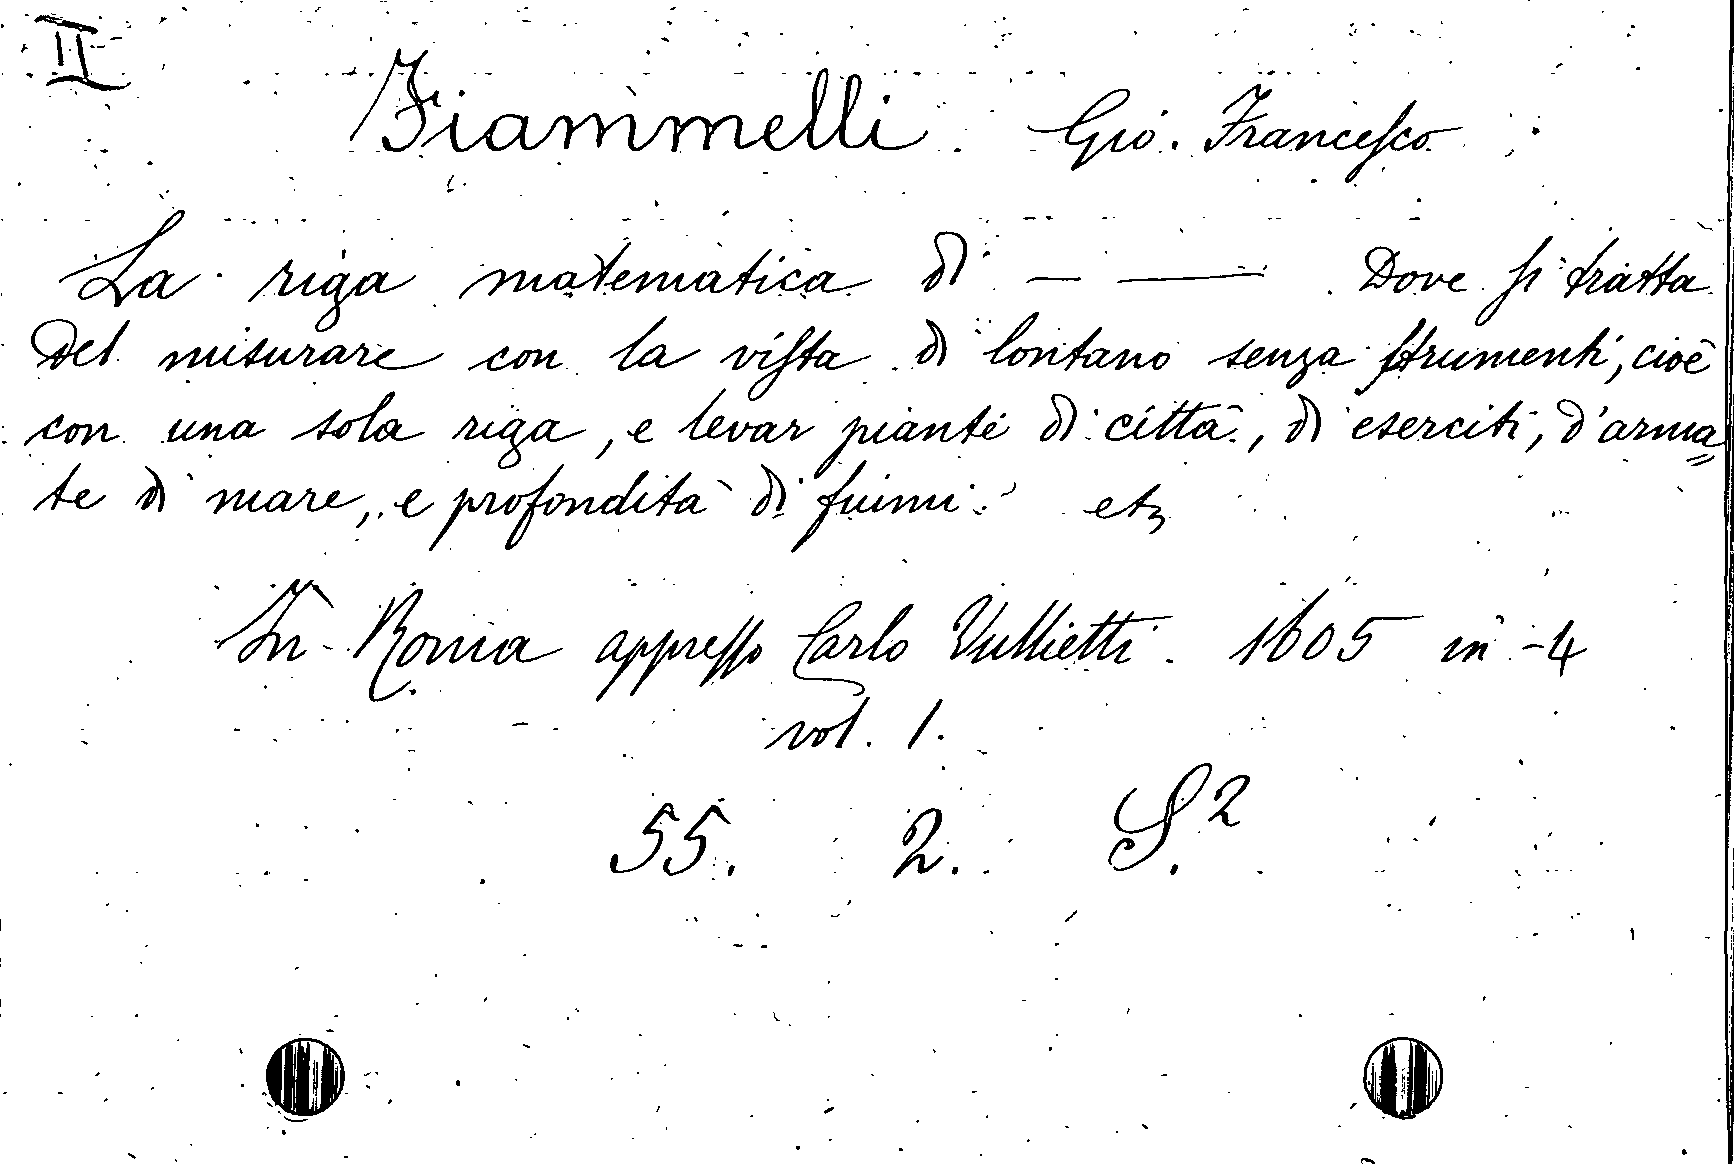 II
Fiammelli Gio. Francesco
La riga matematica di — —— Dove si tratta
del misurare con la vista di lontano senza strumenti, cioè
con una sola riga, e levar piante di città, di eserciti, d'arma=
te di mare, e profondità di fuimi. etz
In Roma appresso Carlo Vullietti. 1605 in-4
vol. 1.
55. 2. S.²